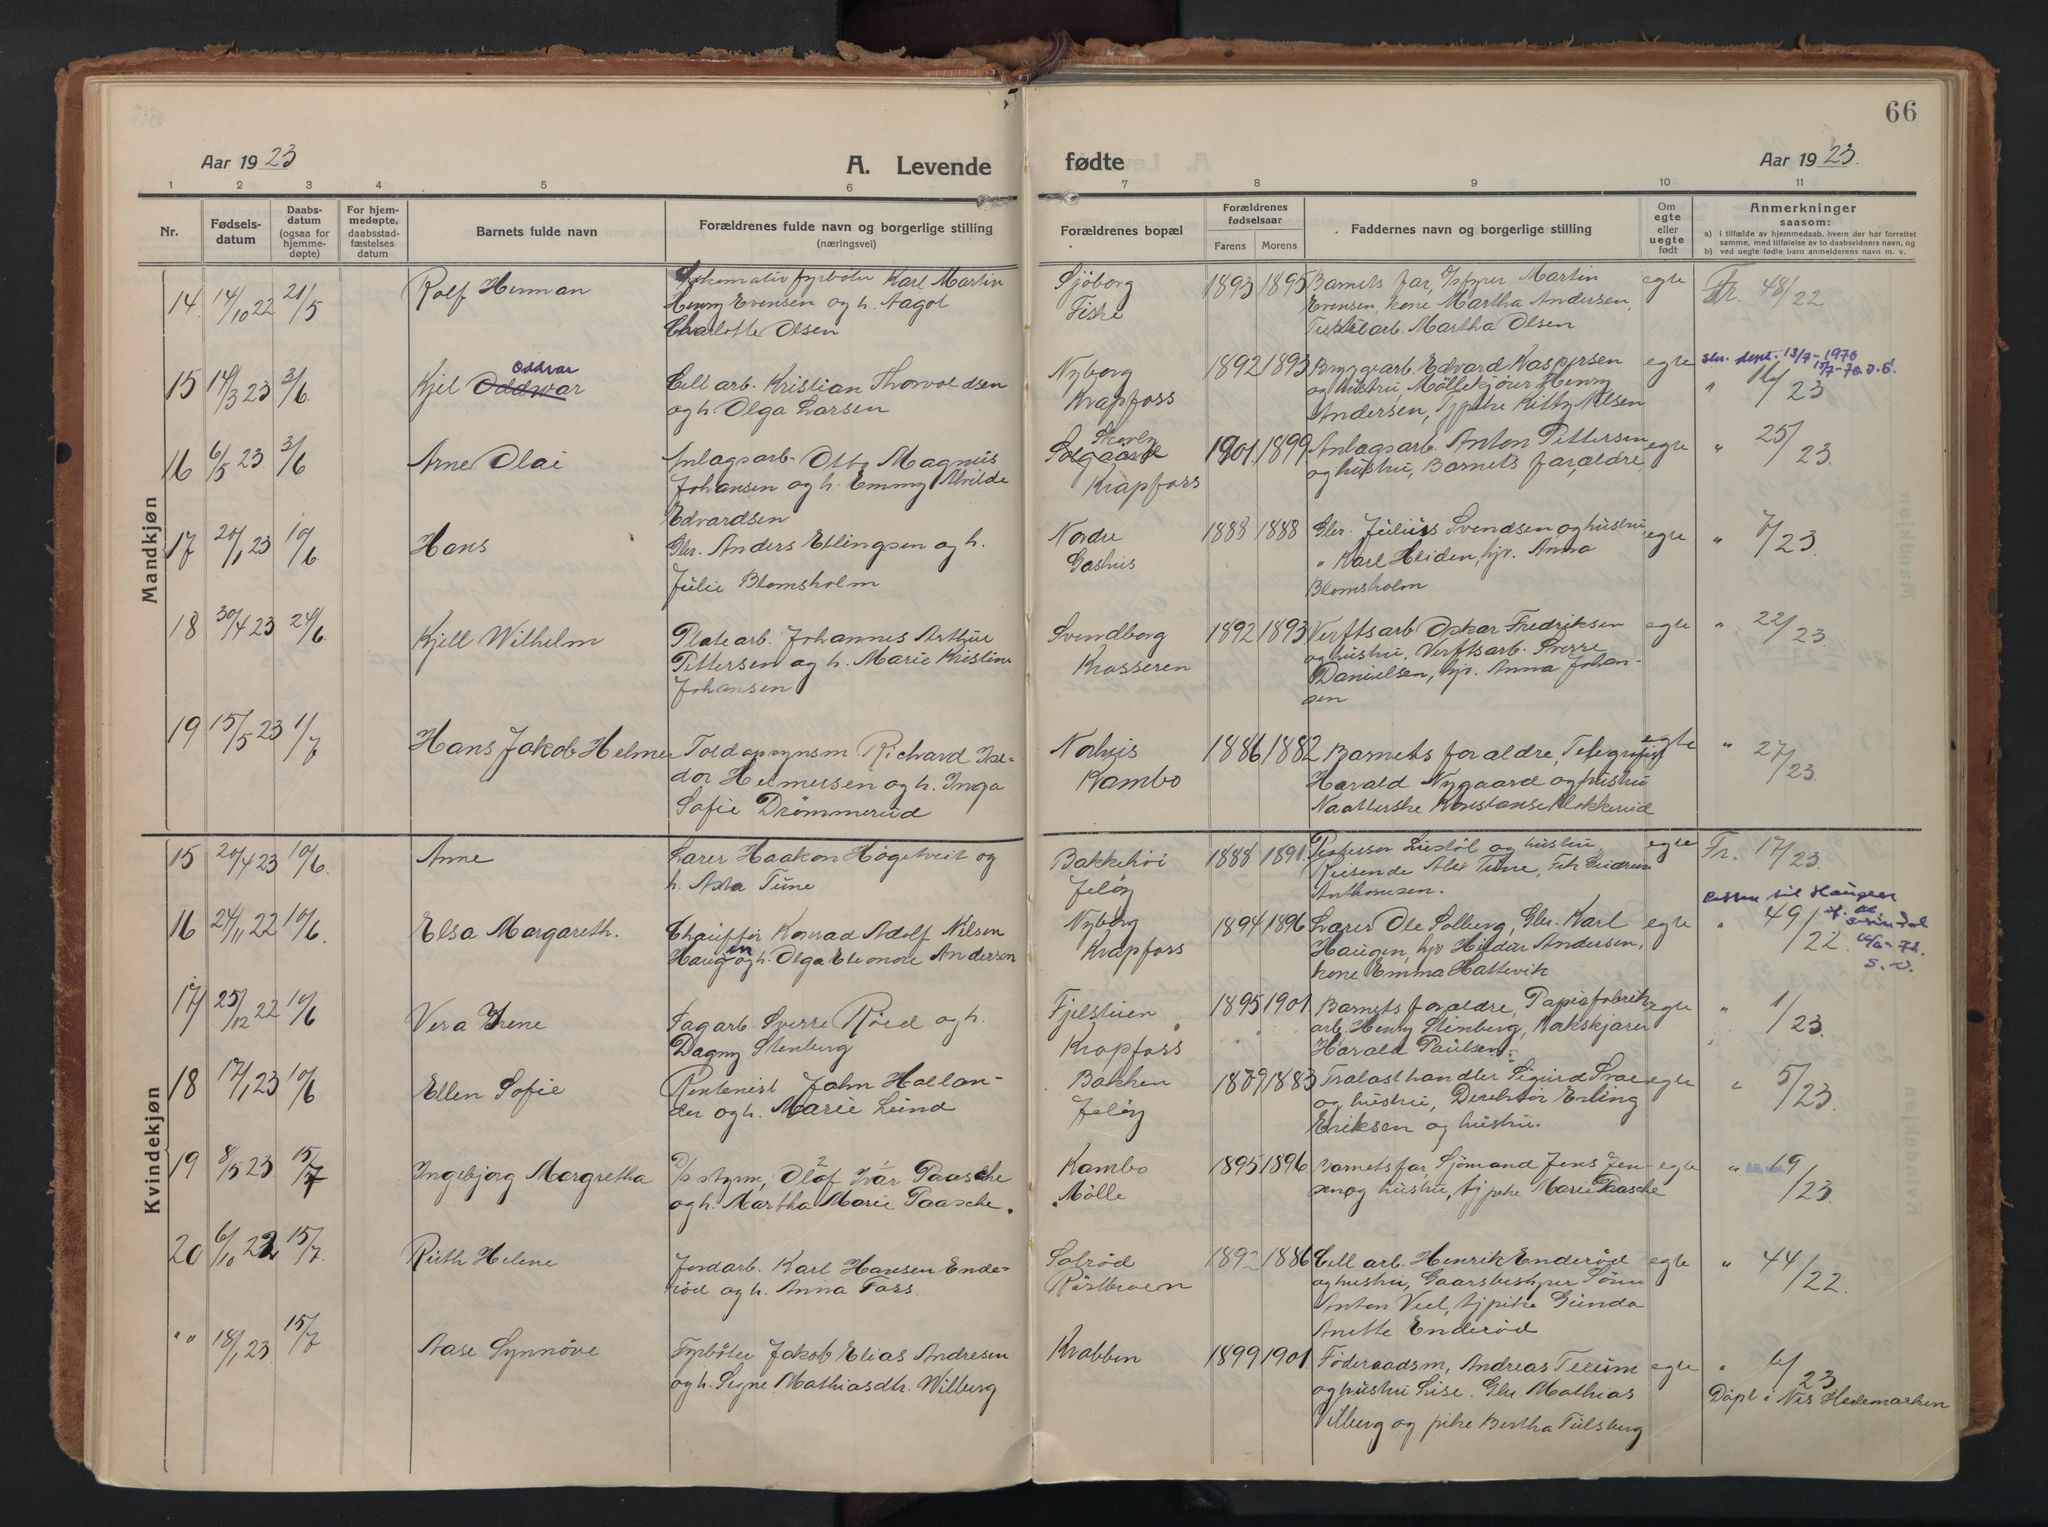 66
Aar 1923
A. Levende
fødte
Aar 1923.
1 2 3 4 5 6 7 8 9 10 11
Nr.
Fødsels-
datum
Daabs-
datum
(ogsaa for
hjemme-
døpte)
For hjem-
medøpte,
daabsstad-
fæstelses
datum
Barnets fulde navn
Forældrenes fulde navn og borgerlige stilling
(næringsvei)
Forældrenes bopæl
Forældrenes
fødselsaar
Farens Morens
Faddernes navn og borgerlige stilling
Om
egte
eller
uegte
født
Anmerkninger
saasom:
a) i tilfælde av hjemmedaab, hvem der har forrettet
samme, med tilføielse av to daabsvidners navn, og
b) ved uegte født barn anmelderens navn m. v.
Mandkjøn
14. 14/10 22 21/5 Rolf Herman
Lokomotiv fyrbøter Karl Martin
Henry Evensen og h. Aagot
Charlotte Olsen
Sjöborg
Fiske
1893 1895
Barnets far, Martin
Evensen, kone Martha Andersen,
arb. Martha Olsen
egte Fr. 48/22
15 14/3 23 3/6. Kjel Oddwar
Oddvar
Cell arb. Kristian Thorvoldsen
og h. Olga Larsen
Nyborg
Krapfoss
1892 1893
Bryggearb. Edvard Kaspersen
og hustru, Möllekjörer Henry
Andersen, Tjpike Kitty Nilsen
egte
13/7-1970
" 16/23
16 6/5 23. 3/6 Arne Olai
Anlagsarb. Otto Magnus
Johansen og h. Emmy Alvilde
Edvardsen
Skoven
Solgaard
Krapfoss
1901. 1899
Anlagsarb. Anton Pettersen
og hustru, Barnets forældre
egte " 25/23.
17 20/1 23 10/6 Hans
Gbr. Anders Ellingsen og h.
Julie Blomsholm
Nordre
Gashus
1883 1888
Gbr. Julius Svendsen og hustru
" Karl Heiden, hjv. Anna
Blomsholm
egte " 7/23.
18 30/4 23 24/6 Kjell Wilhelm
Platearb. Johannes Arthur
Pettersen og h. Marie Kristine
Johansen
Svendborg
Krosseren
1892 1893
Verftsarb Oskar Fredriksen
og hustru. Verftsarb. Sverre
Danielsen, hjv. Anna Johan-
sen
egte " 22/23
19 15/5 23 1/7 Hans Jakob Helmer
Toldopsynsm Richard Isi-
dor Helmersen og h. Inga
Sofie Drömmerud
Nolvis
Kambo
1886 1882
Barnets forældre, Telegrafist
Harald Nygaard og hustru
Naatterske Konstanse Klokkerud
egte " 27/23.
Kvindekjøn
15 20/4 23 10/6. Anne
Lærer Haakon Högetveit og
h. Asta Tune
Bakkehöi
Jelöy
1888 1891.
Professor og hustru,
Reisende Alex Tune, Frk Gudrun
Anthonsen.
egte Fr. 17/23
16 24/11 22 10/6. Elsa Margareth.
Chauffør Konrad Adolf Nilsen
Haugen og h. Olga Eleonore Andersen
Nyborg
Krapfoss
1894 1896
Lærer Ole Solberg, Gbr. Karl
Haugen, hjv Hildur Andersen,
kone Emma Hattevik
egte " 49/22.
til Haugen
S.V.
17 25/12 22 10/6 Vera Irene
Sagarb. Sverre Röed og h.
Dagny Stenberg
Fjelstuen
Krapfoss
1895 1901
Barnets forældre, Papirfabrik-
arb. Henry Stenberg, Kokskjører
Harald Paulsen.
egte " 1/23.
18 17/1 23 10/6 Ellen Sofie
Rentenist John Hollan-
der og h. Marie Lund
Bakken
Jelöy
1879 1883
Tralasthandler Sigurd Svae
og hustru, Direktör Erling
Eriksen og hustru.
egte " 5/23.
19 8/5 23. 15/7 Ingebjorg Margretha
D/s styrm, Olaf Ivar Paasche
og h. Martha Marie Paasche.
Kambo
Mölle
1895 1896
Barnets far, Sjömand Jens Jen-
sen og hustru, tjpike Marie Paasche
egte " 19/23.
20 6/10 22 15/7. Ruth Helene
Jordarb. Karl Hansen Ende-
röd og h. Anna Foss.
Solröd
1892 1886
Cell arb. Henrik Enderöd
og hustru, Gaarsbestyrer Sönn
Anton Veel, tjpike Gunda
Anette Enderöd
egte " 44/22.
" " 18/1 23. 15/7 Aase Synnöve
Fyrböter Jakob Elias Andresen
og h. Signe Mathiasdtr. Wilberg
Krabben
1899 1901
Föderaadsm, Andreas
og hustru Lise. Gbr Mathias
Vilberg og pike Bertha Tulsberg
egte " 6/23
Döpt i Nes Hedemarken